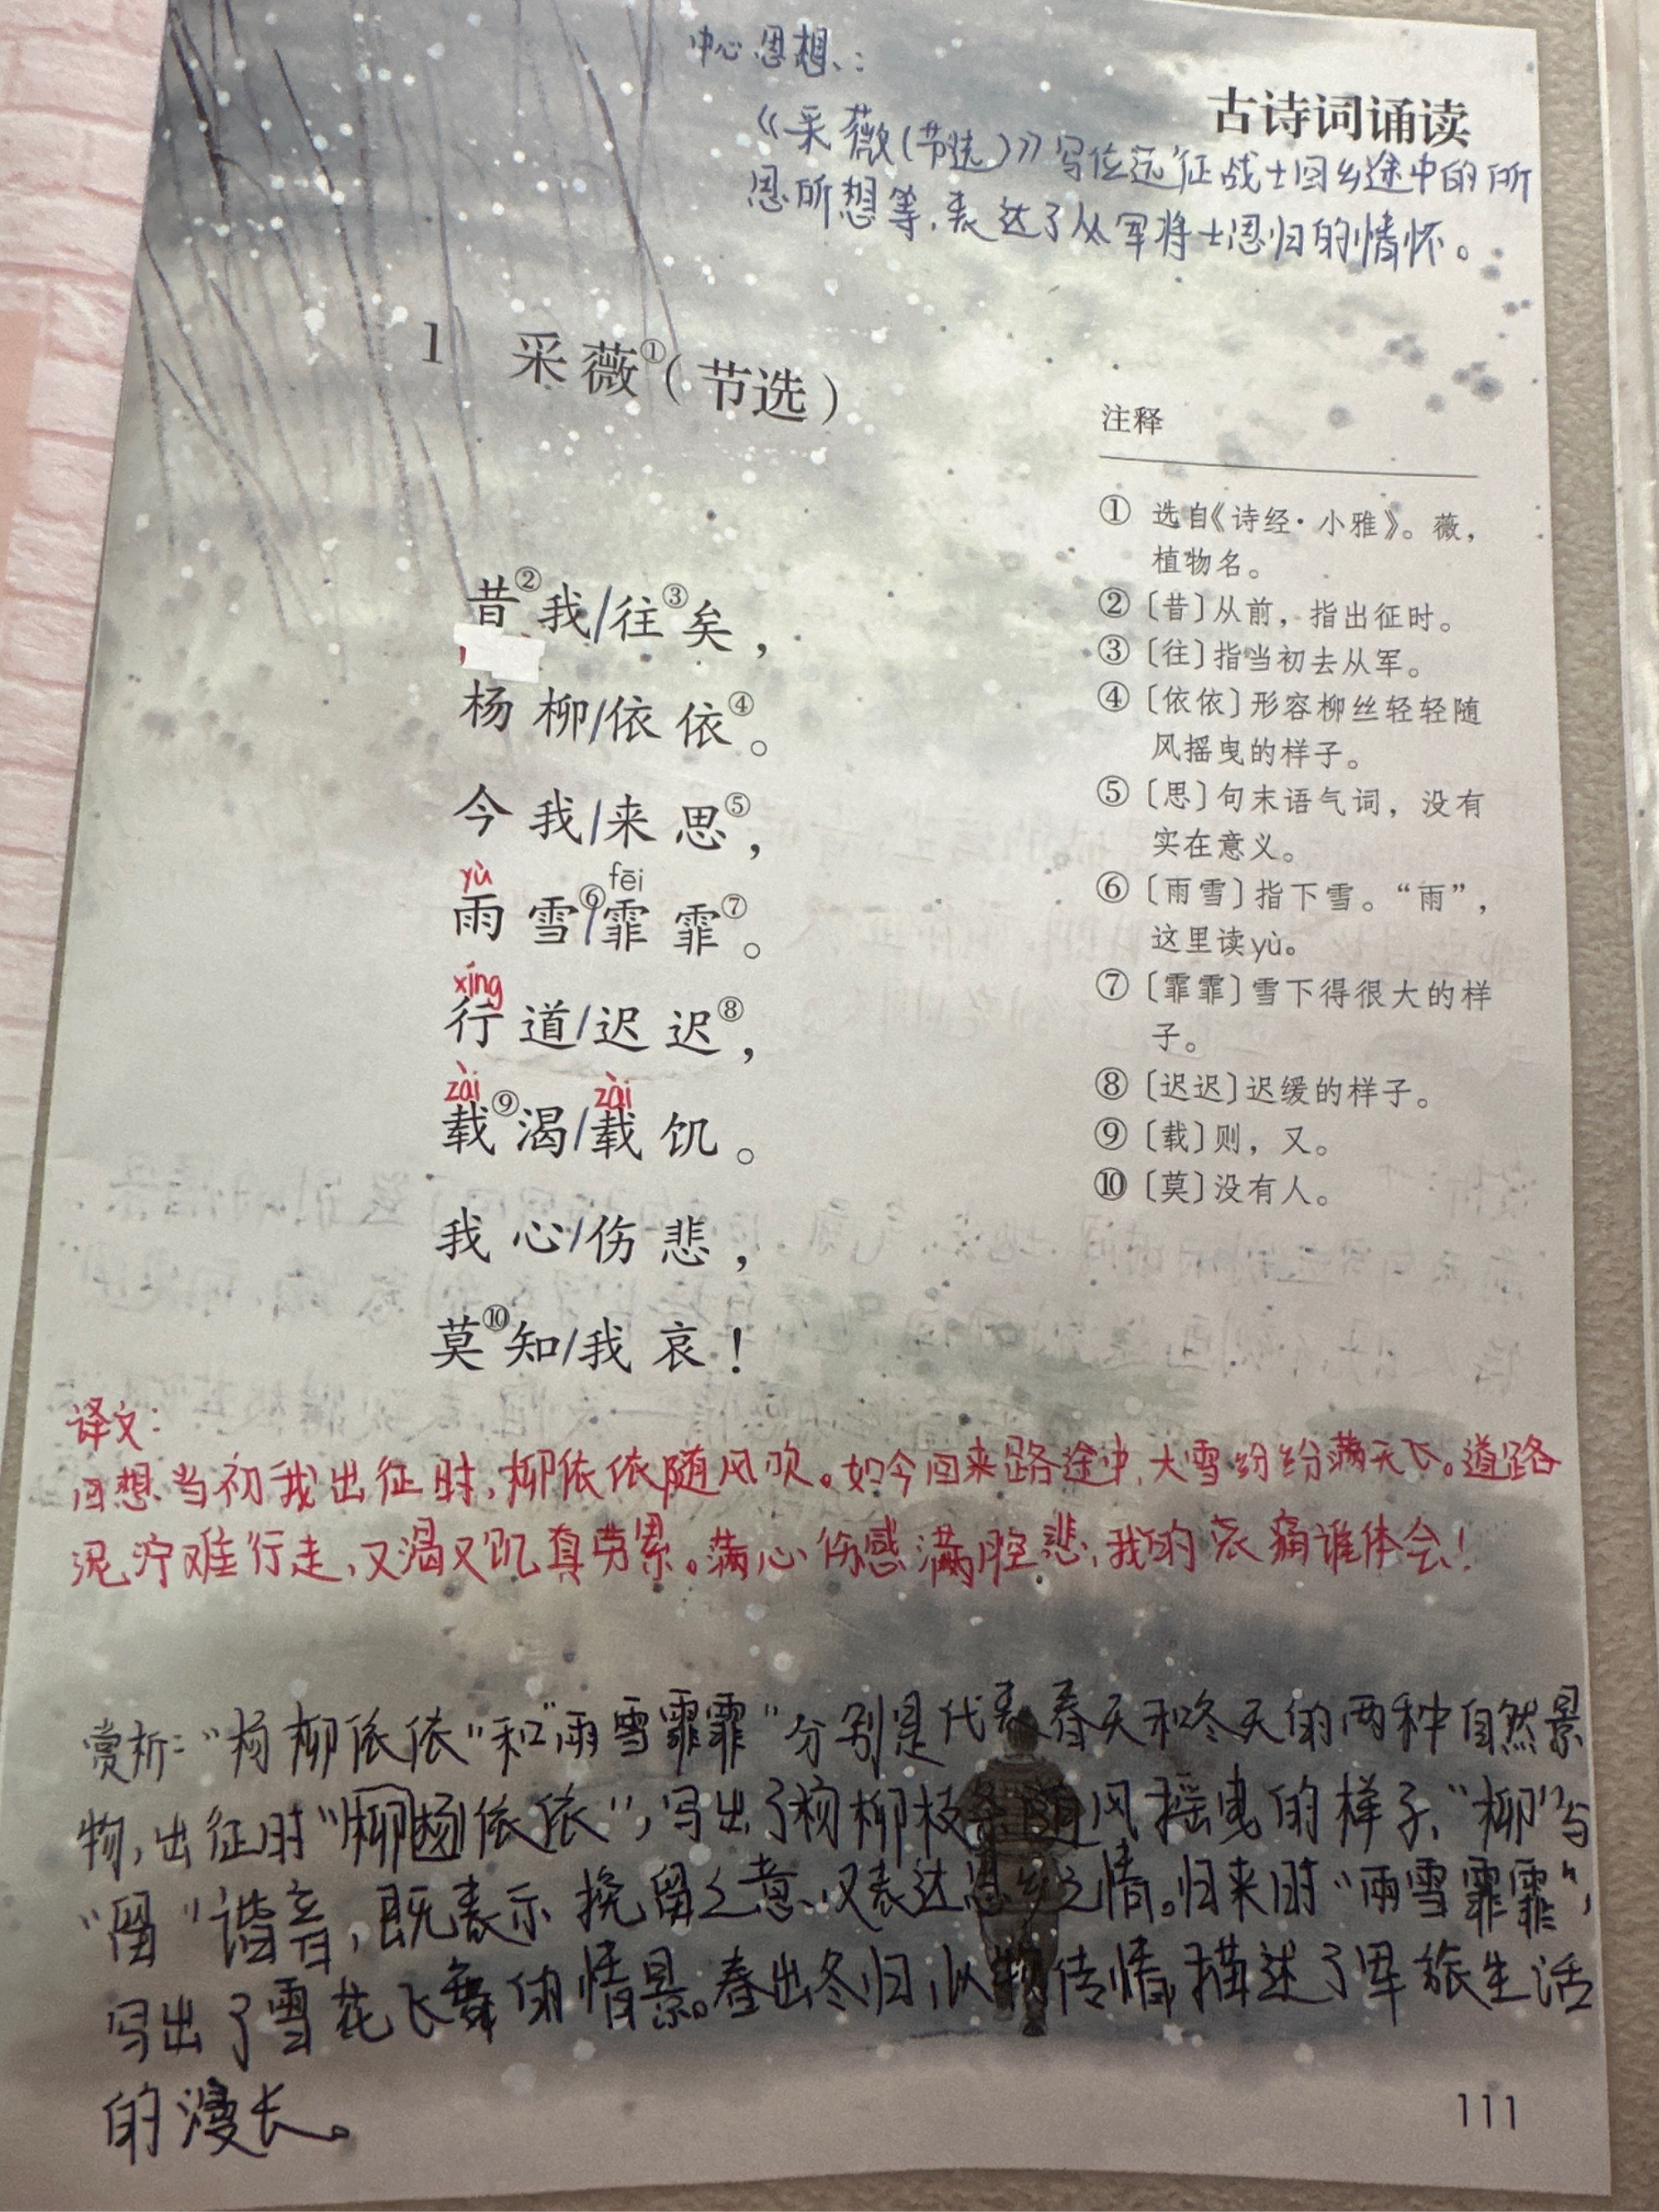 中心思想：
古诗词诵读
《采薇(节选)》写位远征战士回乡途中的所
思所想等，表达了从军将士思归的情怀。
1 采薇①(节选)
昔②我/往③矣，
杨柳/依依④。
今我/来思⑤，
yù fēi
雨雪⑥/霏霏⑦。
xíng
行道/迟迟⑧，
zài zài
载⑨渴/载饥。
我心/伤悲，
莫⑩知/我哀！
注释
① 选自《诗经·小雅》。薇，
植物名。
②〔昔〕从前，指出征时。
③〔往〕指当初去从军。
④〔依依〕形容柳丝轻轻随
风摇曳的样子。
⑤〔思〕句末语气词，没有
实在意义。
⑥〔雨雪〕指下雪。“雨”，
这里读yù。
⑦〔霏霏〕雪下得很大的样
子。
⑧〔迟迟〕迟缓的样子。
⑨〔载〕则，又。
⑩〔莫〕没有人。
译文：
回想当初我出征时，柳依依随风吹。如今回来路途中，大雪纷纷满天飞。道路
泥泞难行走，又渴又饥真劳累。满心伤感满腔悲，我的哀痛谁体会！
赏析：“杨柳依依”和“雨雪霏霏”分别是代表春天和冬天的两种自然景
物，出征时“柳杨依依”，写出了杨柳枝条随风摇曳的样子、“柳”与
“留”谐音，既表示挽留之意、又表达思乡之情。归来时“雨雪霏霏”，
写出了雪花飞舞的情景。春出冬归，以物传情，描述了军旅生活
的漫长。
111